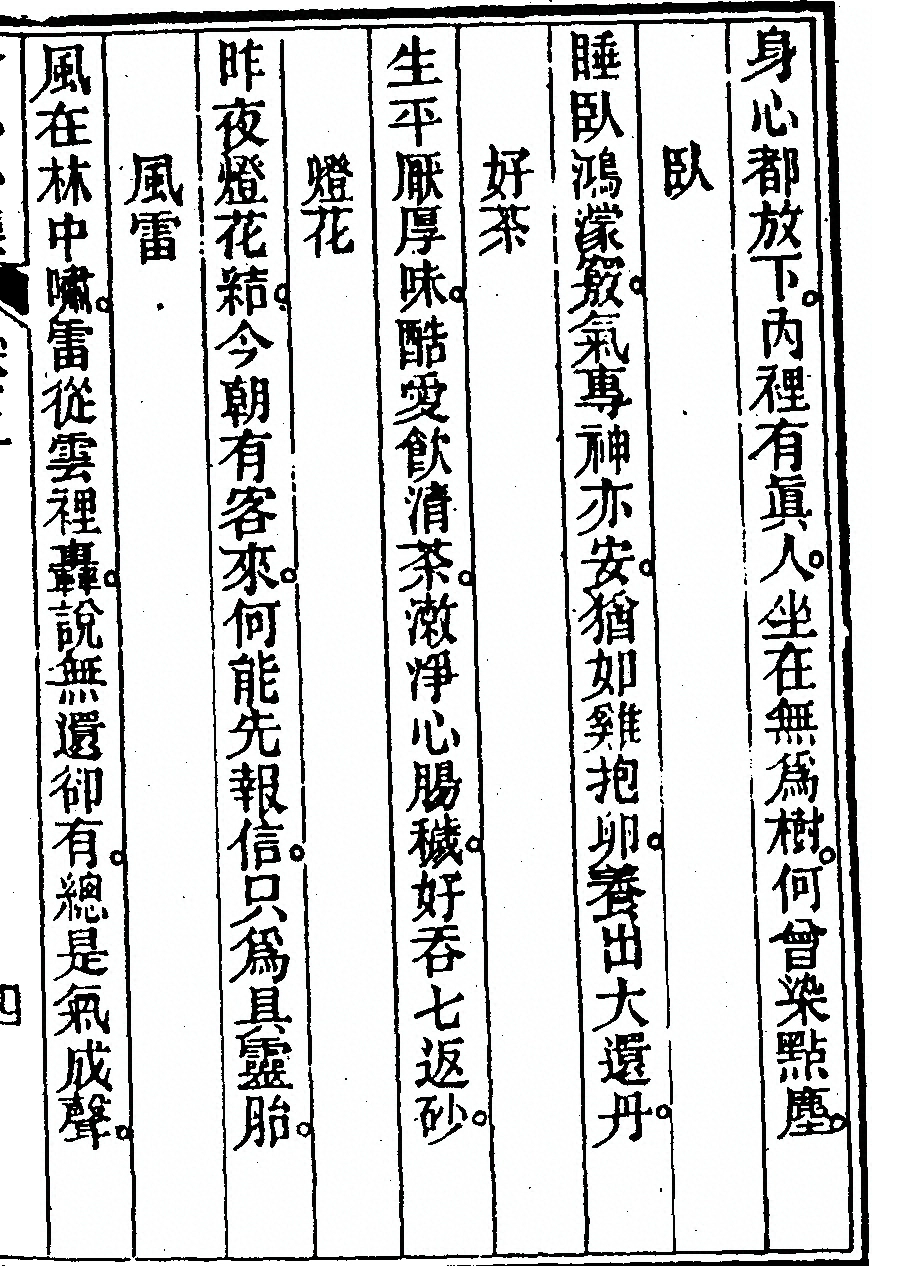 身心都放下。內裡有眞人。坐在無爲樹。何曾染點塵。
臥
睡臥鴻濛竅。氣專神亦安。猶如雞抱卵。養出大還丹。
好茶
生平厭厚味。酷愛飮清茶。漱淨心腸穢。好吞七返砂。
燈花
昨夜燈花結。今朝有客來。何能先報信。只爲具靈胎。
風雷
風在林中嘯。雷從雲裡轟。說無還卻有。總是氣成聲。
四